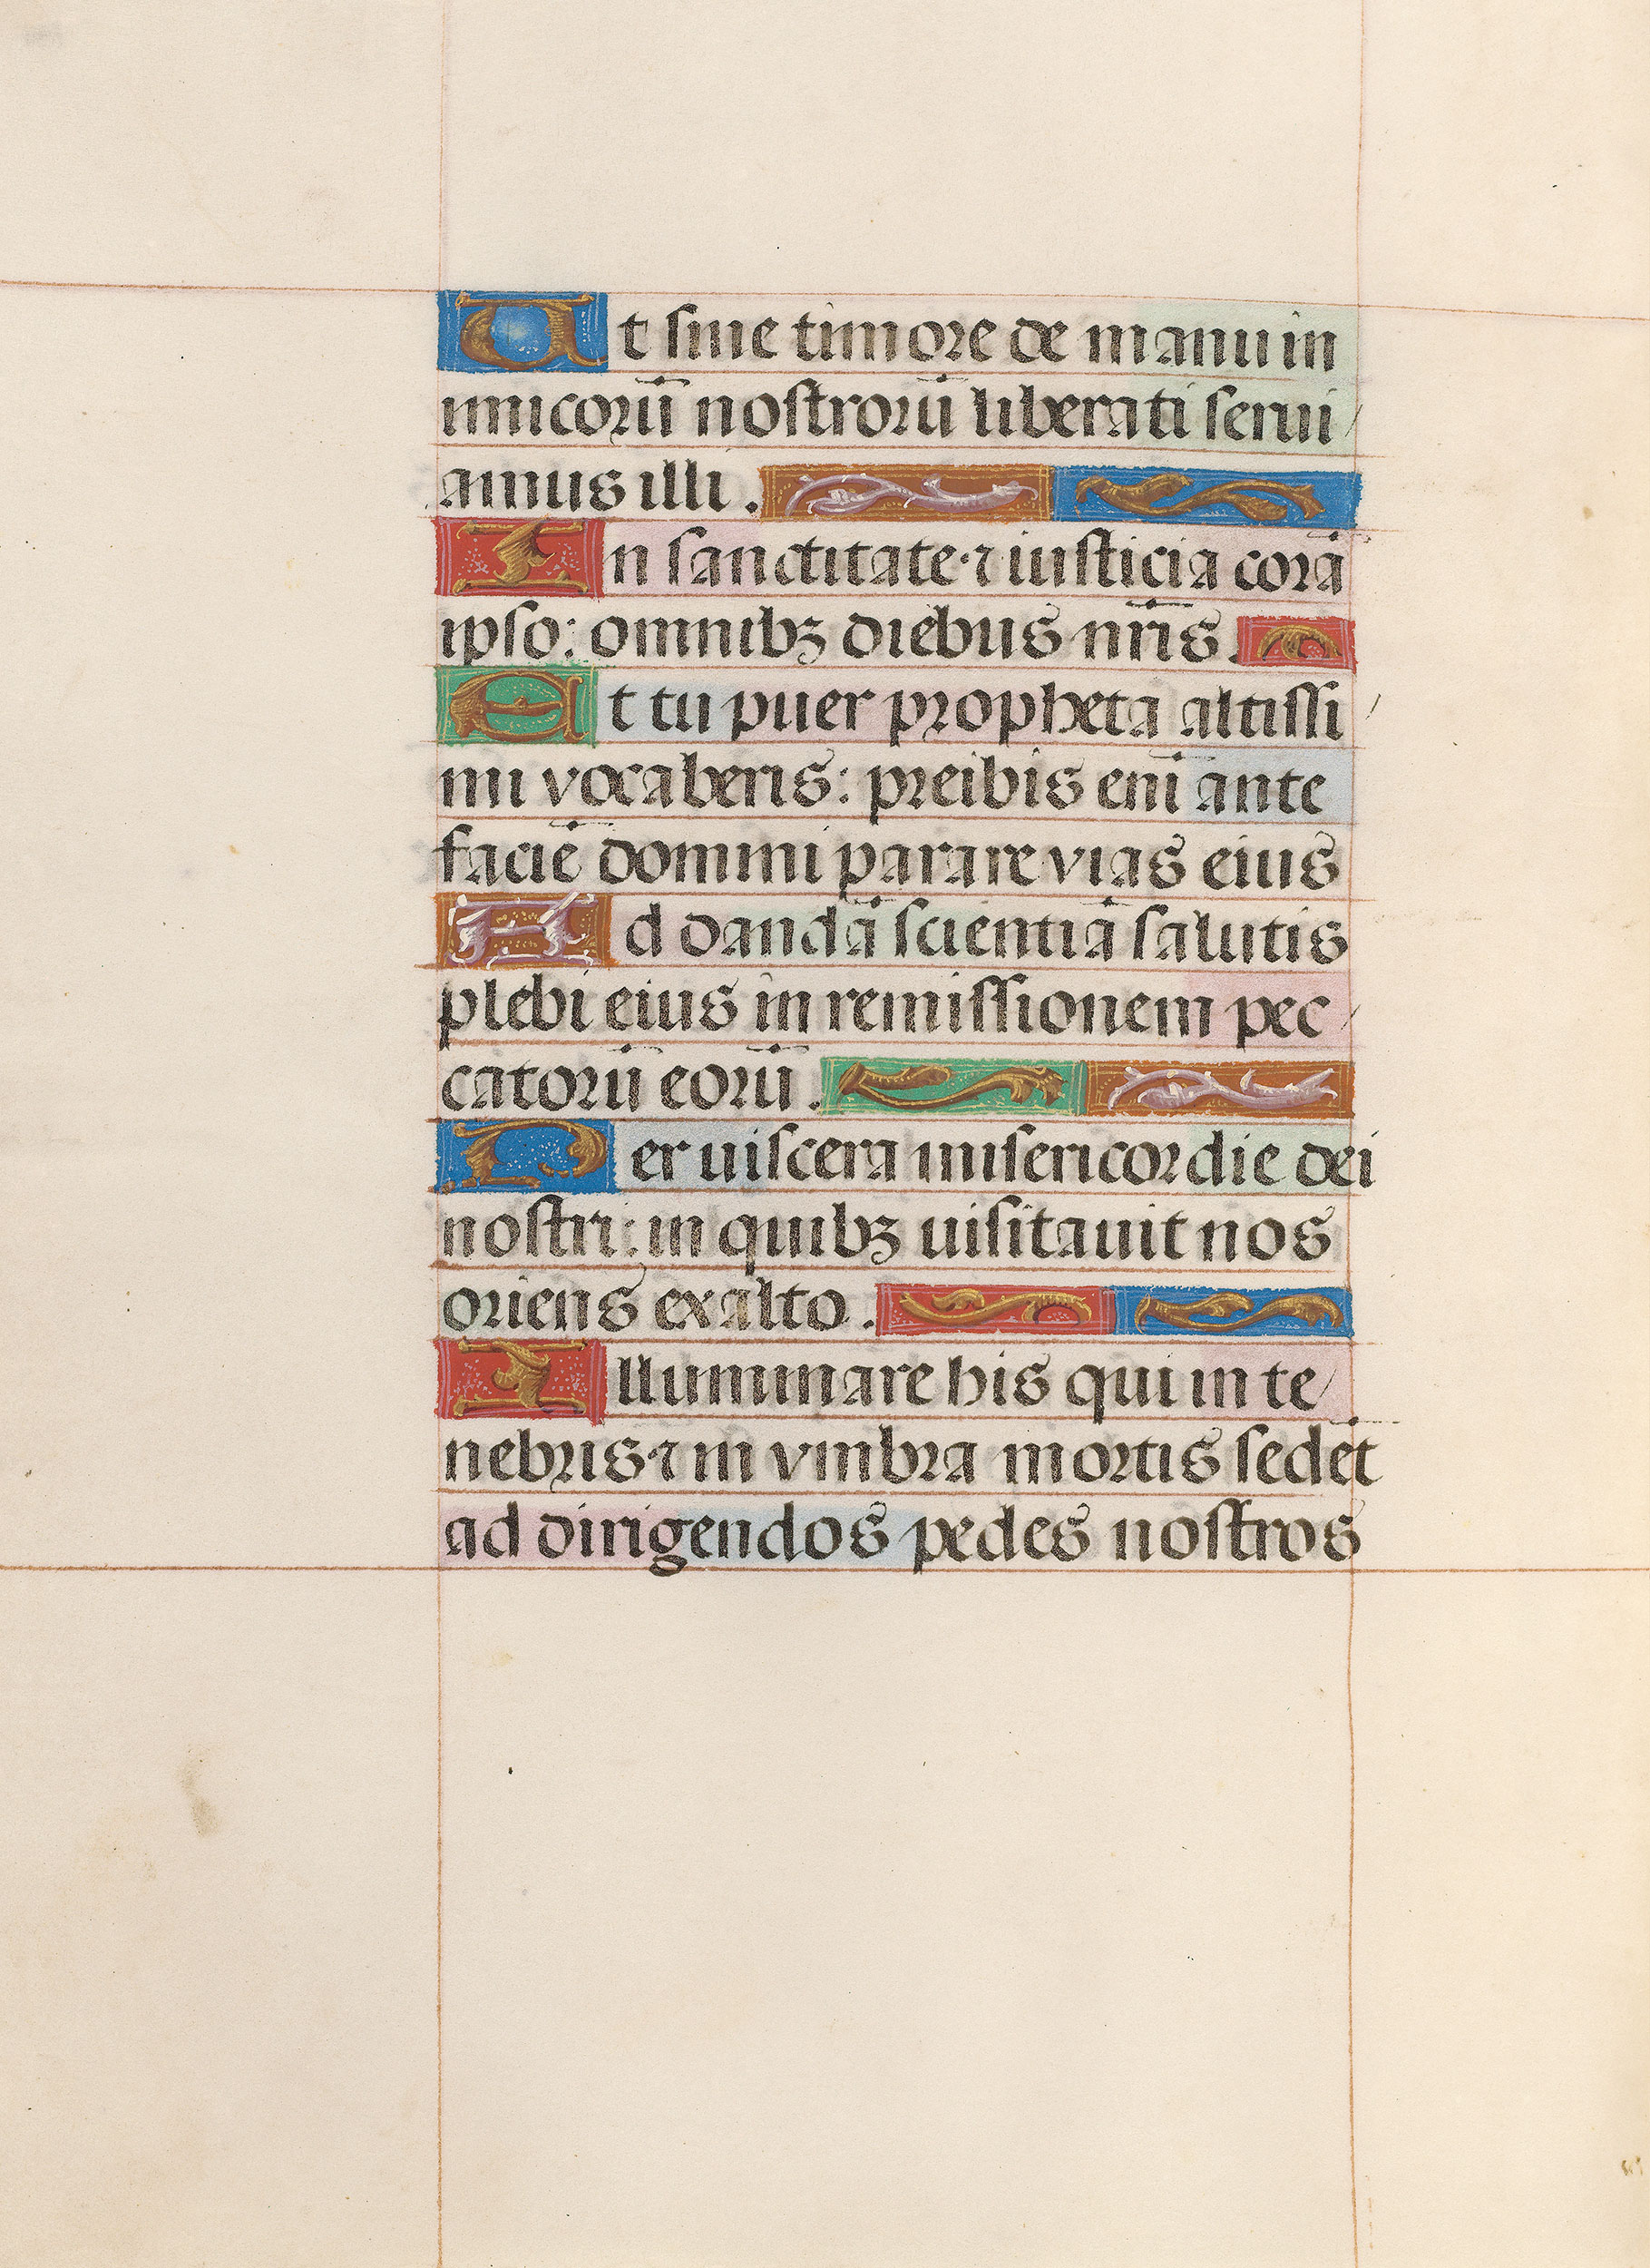 Ut sine timore de manu in
imicorū nostrorū liberati serui/
amus illi.
In sanctitate ⁊ iusticia corā
ipso: omnibꝫ diebus nr̄is.
Et tu puer propheta altissi/
mi vocaberis: preibis eni̅ ante
faciē domini parare vias eius
Ad dandā scientiā salutis
plebi eius in remissionem pec/
catorū eorū.
Per uiscera misericordie dei
nostri: in quibꝫ uisitauit nos
oriens ex alto.
Illuminare his qui in te/
nebris ⁊ in vmbra mortis sedēt
ad dirigendos pedes nostros